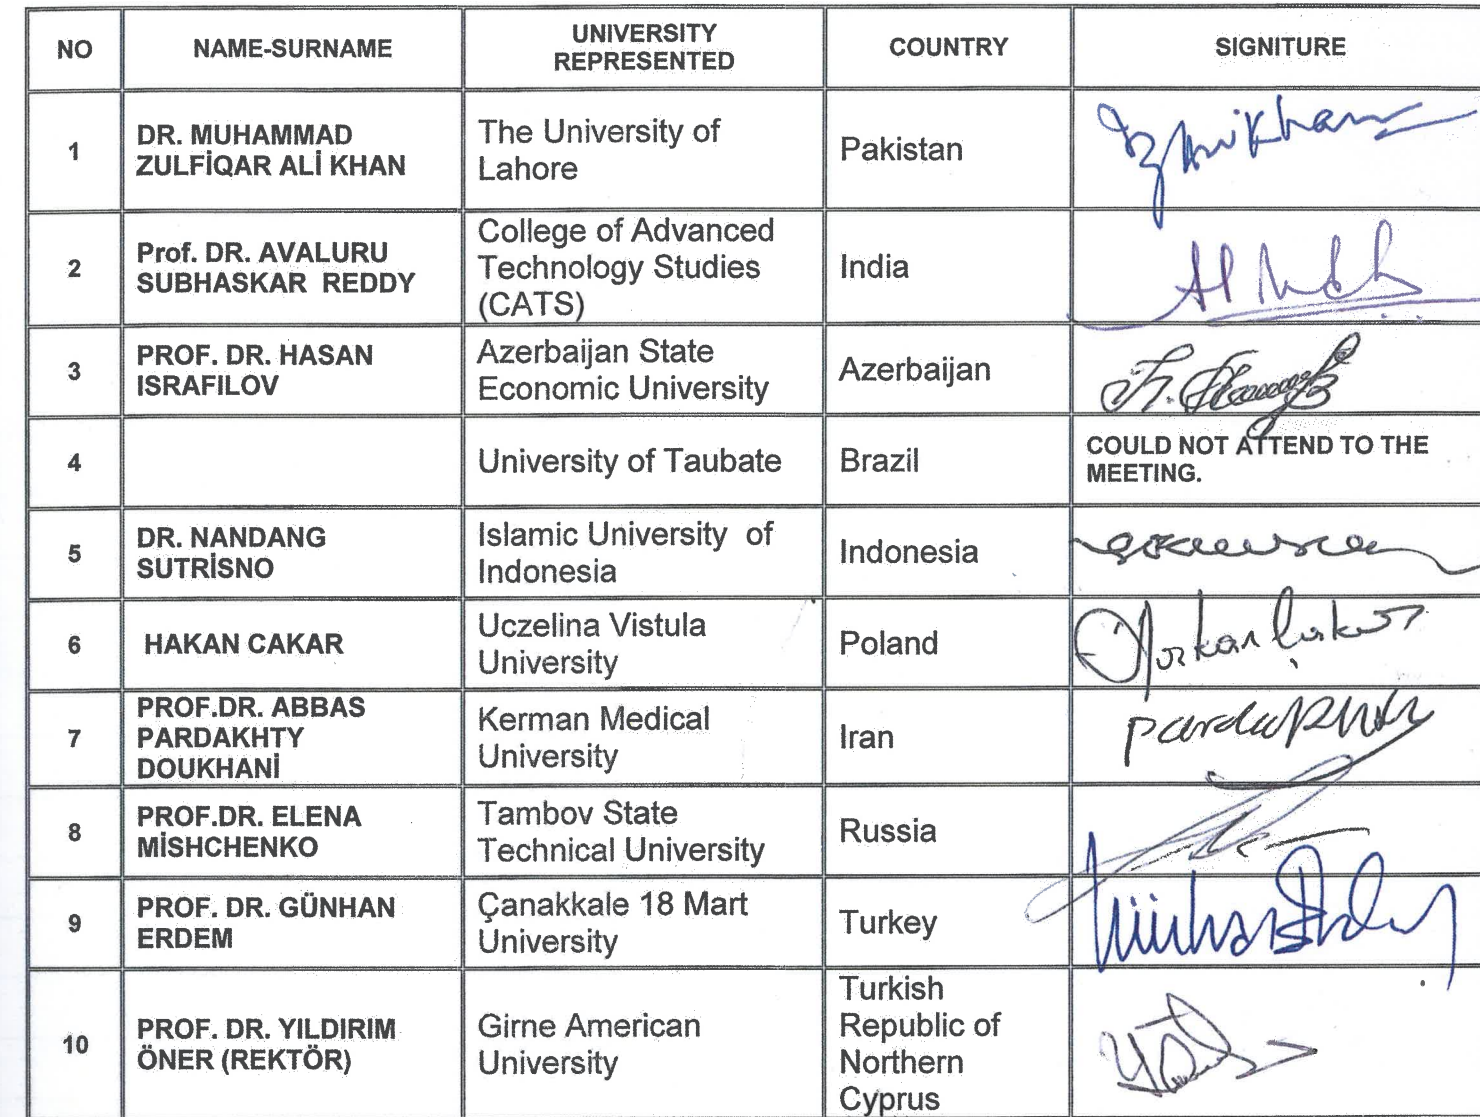 NO
NAME-SURNAME
UNIVERSITY
REPRESENTED
COUNTRY
SIGNITURE
1
DR. MUHAMMAD
ZULFİQAR ALİ KHAN
The University of
Lahore
Pakistan
2
Prof. DR. AVALURU
SUBHASKAR REDDY
College of Advanced
Technology Studies
(CATS)
India
3
PROF. DR. HASAN
ISRAFILOV
Azerbaijan State
Economic University
Azerbaijan
4
University of Taubate
Brazil
COULD NOT ATTEND TO THE
MEETING.
5
DR. NANDANG
SUTRİSNO
Islamic University of
Indonesia
Indonesia
6
HAKAN CAKAR
Uczelina Vistula
University
Poland
7
PROF.DR. ABBAS
PARDAKHTY
DOUKHANİ
Kerman Medical
University
Iran
8
PROF.DR. ELENA
MİSHCHENKO
Tambov State
Technical University
Russia
9
PROF. DR. GÜNHAN
ERDEM
Çanakkale 18 Mart
University
Turkey
10
PROF. DR. YILDIRIM
ÖNER (REKTÖR)
Girne American
University
Turkish
Republic of
Northern
Cyprus